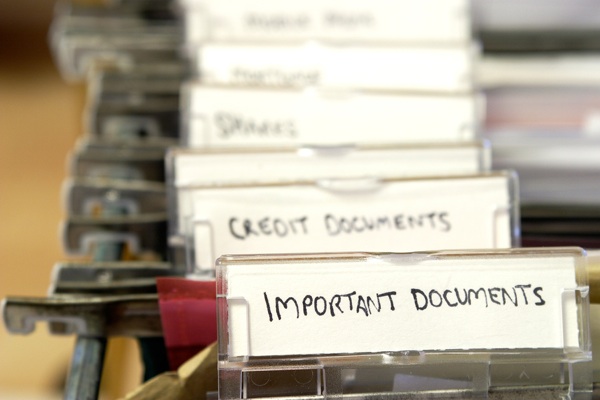 SHARES
CREDIT DOCUMENTS
IMPORTANT DOCUMENTS